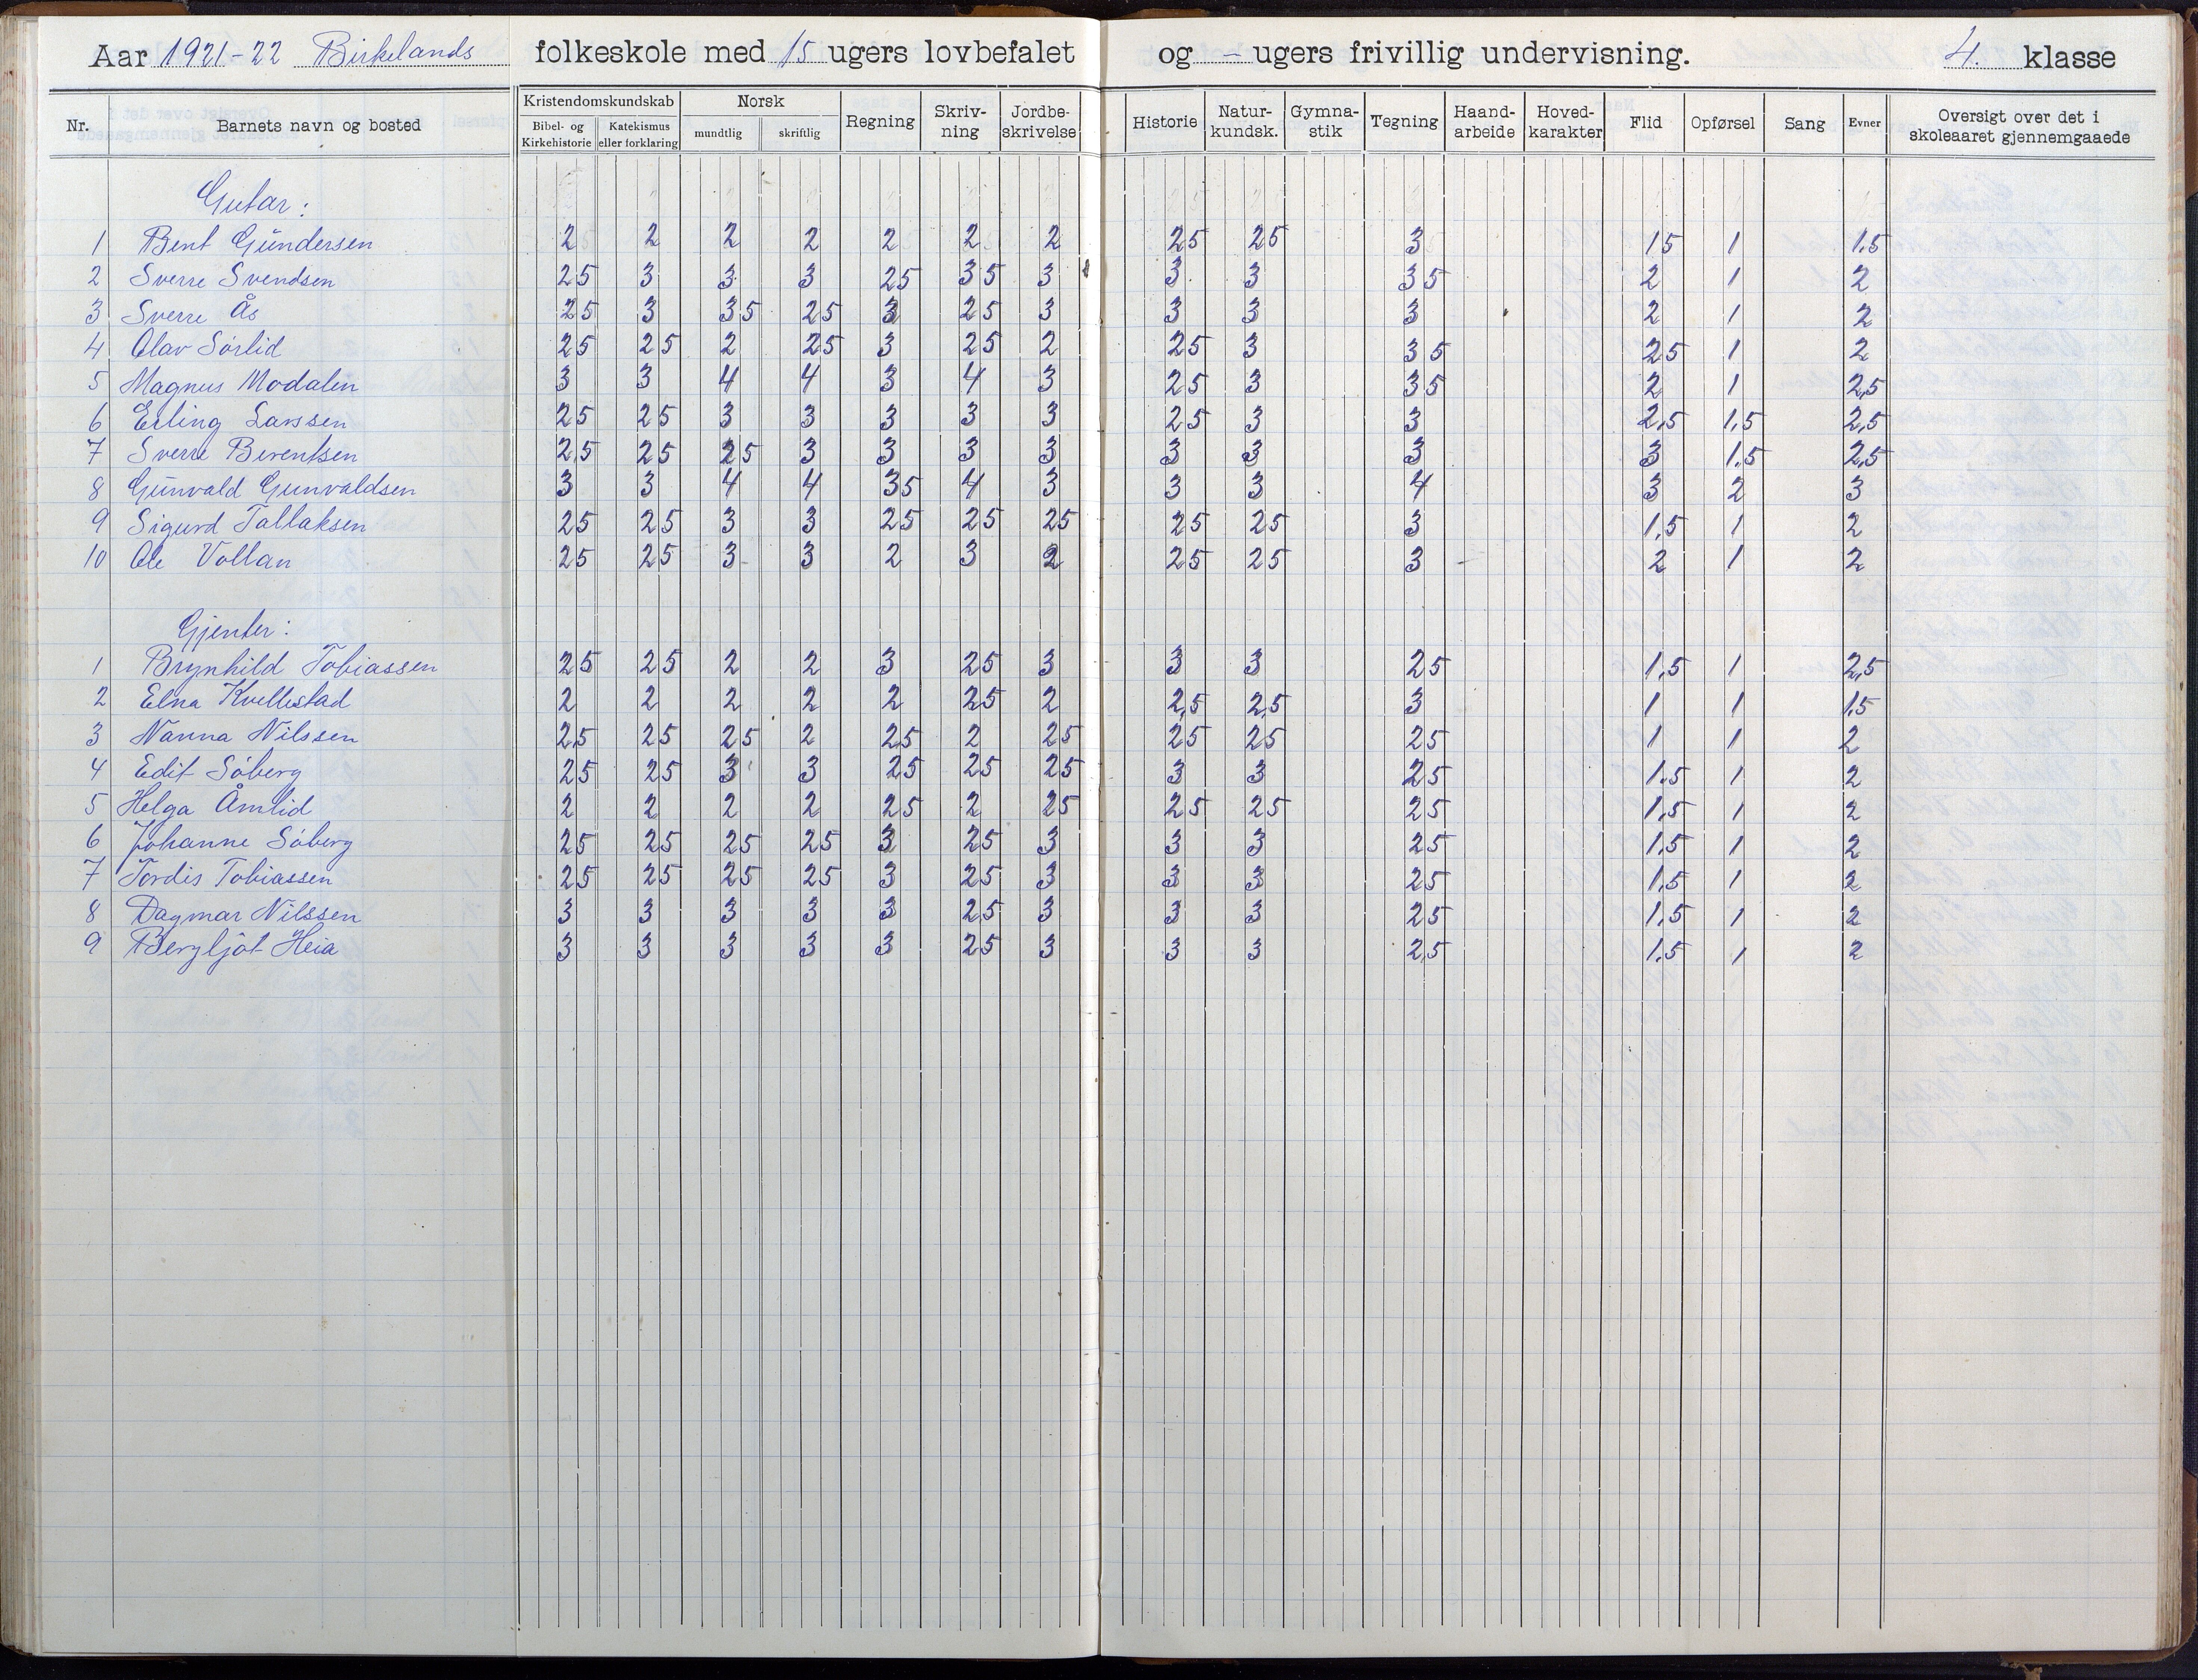 Aar 1921-22 Birkelands folkeskole med 15 ugers lovbefalet og - ugers frivillig undervisning. 4. klasse
Nr. Barnets navn og bosted Kristendomskundskab Bibel- og Kirkehistorie Katekismus eller forklaring Norsk mundtlig skriftlig Regning Skriv-ning Jordbe-skrivelse Historie Natur-kundsk. Gymna-stik Tegning Haand-arbeide Hoved-karakter Flid Opførsel Sang Evner Oversigt over det i skoleaaret gjennemgaaede
Gutar:
1 Bent Gundersen 2 2 2 2 2 2 2 25 25 3 15 1 1.5
2 Sverre Svendsen 25 3 3 3 25 35 3 3 3 35 2 1 2
3 Sverre Ås 25 3 35 25 3 25 3 3 3 3 2 1 2
4 Olav Sörlid 25 25 2 25 3 25 2 25 3 35 25 1 2
5 Magnus Modalen 3 3 4 4 3 4 3 25 3 35 2 1 2,5
6 Erling Larssen 25 25 3 3 3 3 3 25 3 3 2,5 1,5 2,5
7 Sverre Berentsen 2,5 25 25 3 3 3 3 3 3 3 3 1,5 2,5
8 Gunvald Gunvaldsen 3 3 4 4 35 4 3 3 3 4 3 2 3
9 Sigurd Tallaksen 25 25 3 3 25 25 25 25 25 3 1,5 1 2
10 Ole Vollan 25 25 3 3 2 3 2 25 25 3 2 1 2
Gjenter:
1 Brynhild Tobiassen 25 25 2 2 3 25 3 3 3 25 1,5 1 2,5
2 Elna Kvellestad 2 2 2 2 2 25 2 2,5 2,5 3 1 1 1,5
3 Nanna Nilssen 2,5 25 25 2 25 2 25 25 25 25 1 1 2
4 Edit Söberg 25 25 3 3 25 25 25 3 3 25 1.5 1 2
5 Helga Åmlid 2 2 2 2 25 2 25 25 25 25 1,5 1 2
6 Johanne Söberg 25 25 25 25 3 25 3 3 3 25 1,5 1 2
7 Tordis Tobiassen 25 25 25 25 3 25 3 3 3 25 1,5 1 2
8 Dagmar Nilssen 3 3 3 3 3 25 3 3 3 25 1,5 1 2
9 Bergljót Heia 3 3 3 3 3 25 3 3 3 2,5 1.5 1 2